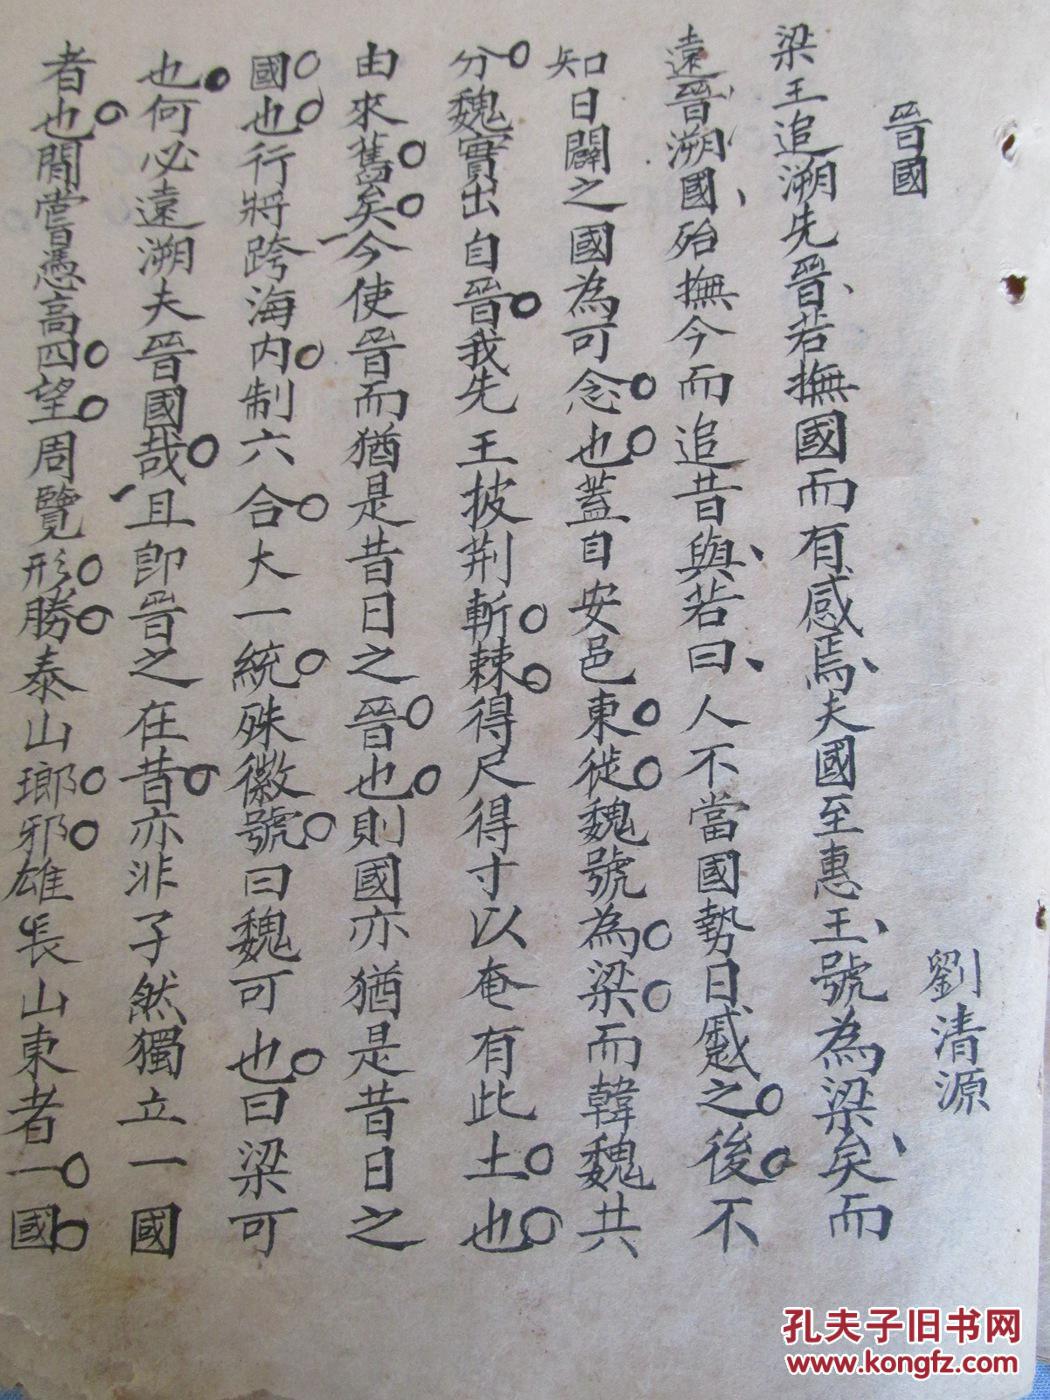 晉國
劉清源
梁王追溯先晉若撫國而有感焉夫國至惠王號為梁矣而
遠晉溯國殆撫今而追昔與若曰人不當國勢日蹙之後不
知日闢之國為可念也蓋自安邑東徙魏號為梁而韓魏共
分魏實出自晉我先王披荆斬棘得尺得寸以奄有此土也
由來舊矣今使晉而猶是昔日之晉也則國亦猶是昔日之
國也行將跨海内制六合大一統殊徽號曰魏可也曰梁可
也何必遠溯夫晉國哉且即晉之在昔亦非孑然獨立一國
者也閒嘗憑高四望周覽形勝泰山瑯邪雄長山東者一國
孔夫子旧书网
www.kongfz.com